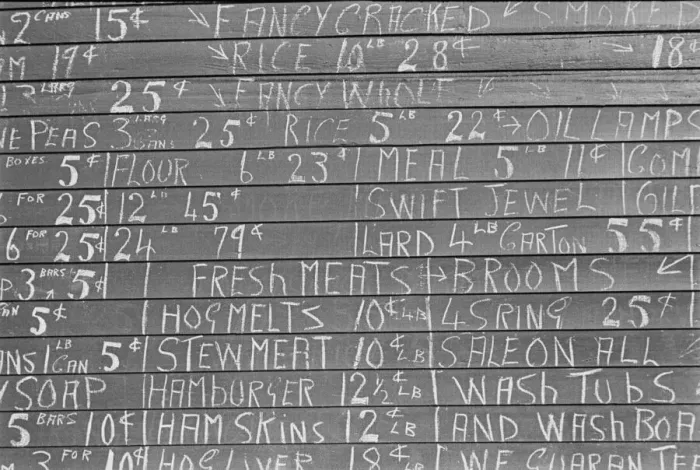 2 CANS 15¢ FANCY CRACKED SMOKED
M 19¢ RICE 10 LB 28¢ 18
25¢ FANCY WHOLE
PEAS 3 LARG CANS 25¢ RICE 5 LB 22¢ OIL LAMPS
BOXES 5¢ FLOUR 6 LB 23¢ MEAL 5 LB 11¢ COM
FOR 25¢ 12 LB 45¢ SWIFT JEWEL GIL
6 FOR 25¢ 24 LB 79¢ LARD 4 LB CARTON 55¢
P 3 BARS 5¢ FRESH MEATS BROOMS
AN 5¢ HOG MELTS 10¢ LB 4 SRING 25¢
NS 1 LB CAN 5¢ STEW MEAT 10¢ LB SALE ON ALL
SOAP HAMBURGER 12½¢ LB WASH TUBS
5 BARS 10¢ HAM SKINS 12¢ LB AND WASH BOA
3 FOR 10¢ HOG LIVER 18¢ LB WE GUARANTE